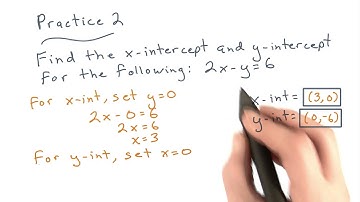 Practice 2
Find the x-intercept and y-intercept
for the following: 2x-y=6
For x-int, set y=0
2x-0=6
2x=6
x=3
For y-int, set x=0
x-int= (3,0)
y-int= (0,-6)